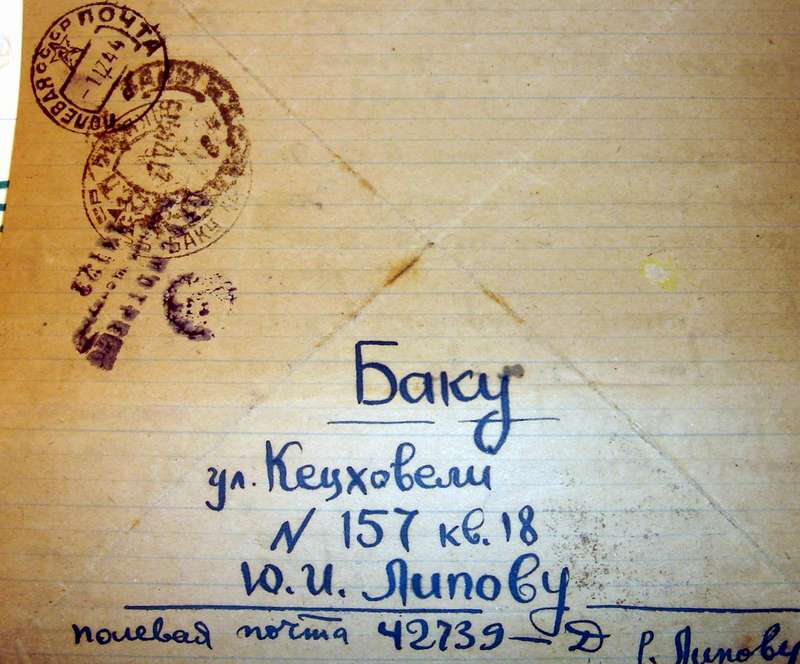 ПОЛЕВАЯ ПОЧТА
СССР
-1.12.44
БАКУ
Баку
ул. Кецховели
N 157 кв. 18
Ю. И. Липову
полевая почта 42739-Д Р. Липову